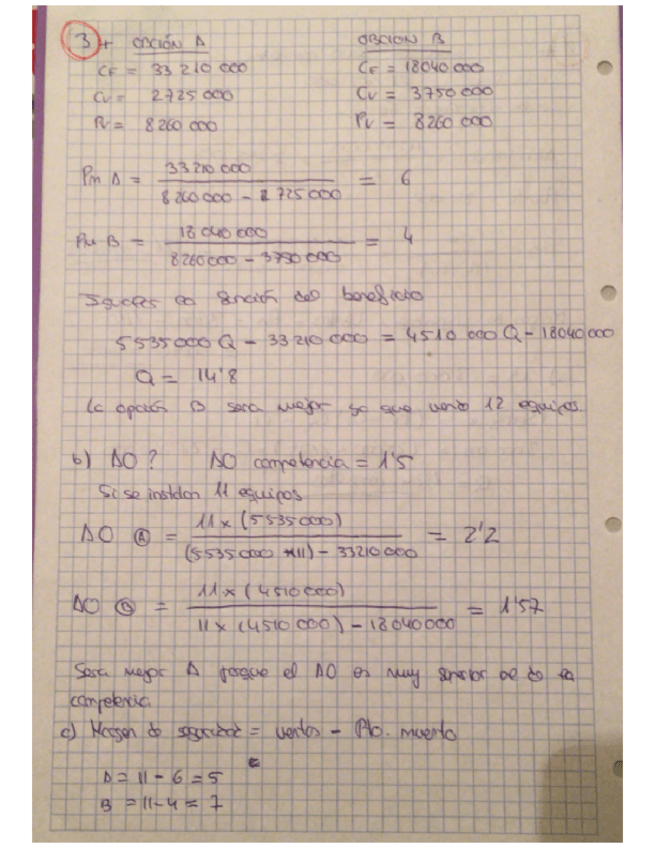 3+ OPCIÓN A OPCION B
CF = 33 210 000 CF = 18040 000
CV = 2725 000 CV = 3750 000
PV = 8260 000 PV = 8260 000
Pm A = 33210 000 / 8260000 - 2725000 = 6
Pm B = 18040000 / 8260000 - 3750000 = 4
función del beneficio
5535000 Q - 33210 000 = 4510 000 Q - 18040 000
Q = 14'8
la opción B sera mejor ya que vendo 12 equipos.
b) AO? AO competencia = 1'5
Si se instalan 11 equipos
AO A = 11 x (5535000) / (5535000 x11) - 33210000 = 2'2
AO B = 11 x (4510000) / 11 x (4510 000) - 18040000 = 1'57
Sera mejor A porque el AO es muy superior al de la
competencia
c) Margen de seguridad = ventas - Pto. muerto
A = 11 - 6 = 5
B = 11 - 4 = 7